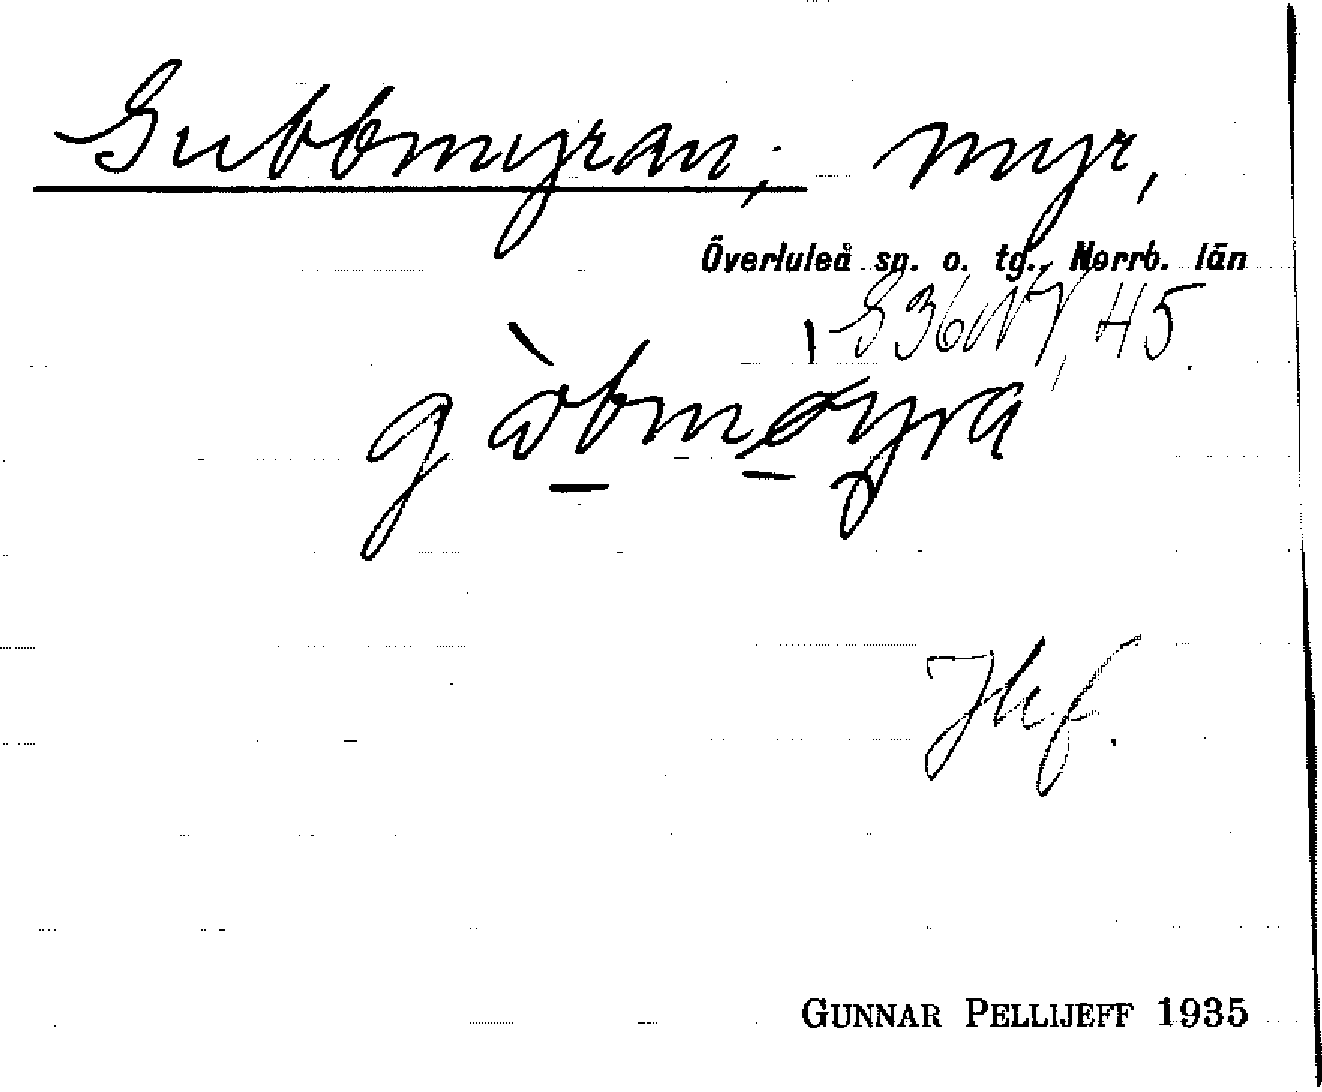 Gubbmyran, myr,
Överluleå sn. o. tg., Norrb. län
G36NV, 45
Jhf.
GUNNAR PELLIJEFF 1935